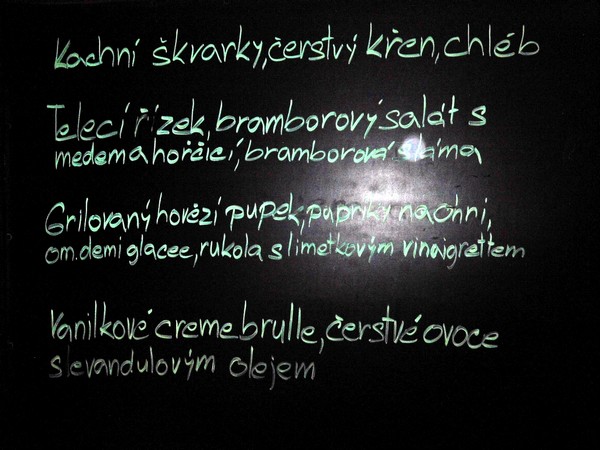 Kachní škvarky, čerstvý křen, chléb
Telecí řízek, bramborový salát s
medem a hořčicí, bramborová sláma
Grilovaný hovězí pupek, papriky na ohni,
om. demi glacee, rukola s limetkovým vinaigrettem
Vanilkové creme brulle, čerstvé ovoce
s levandulovým olejem